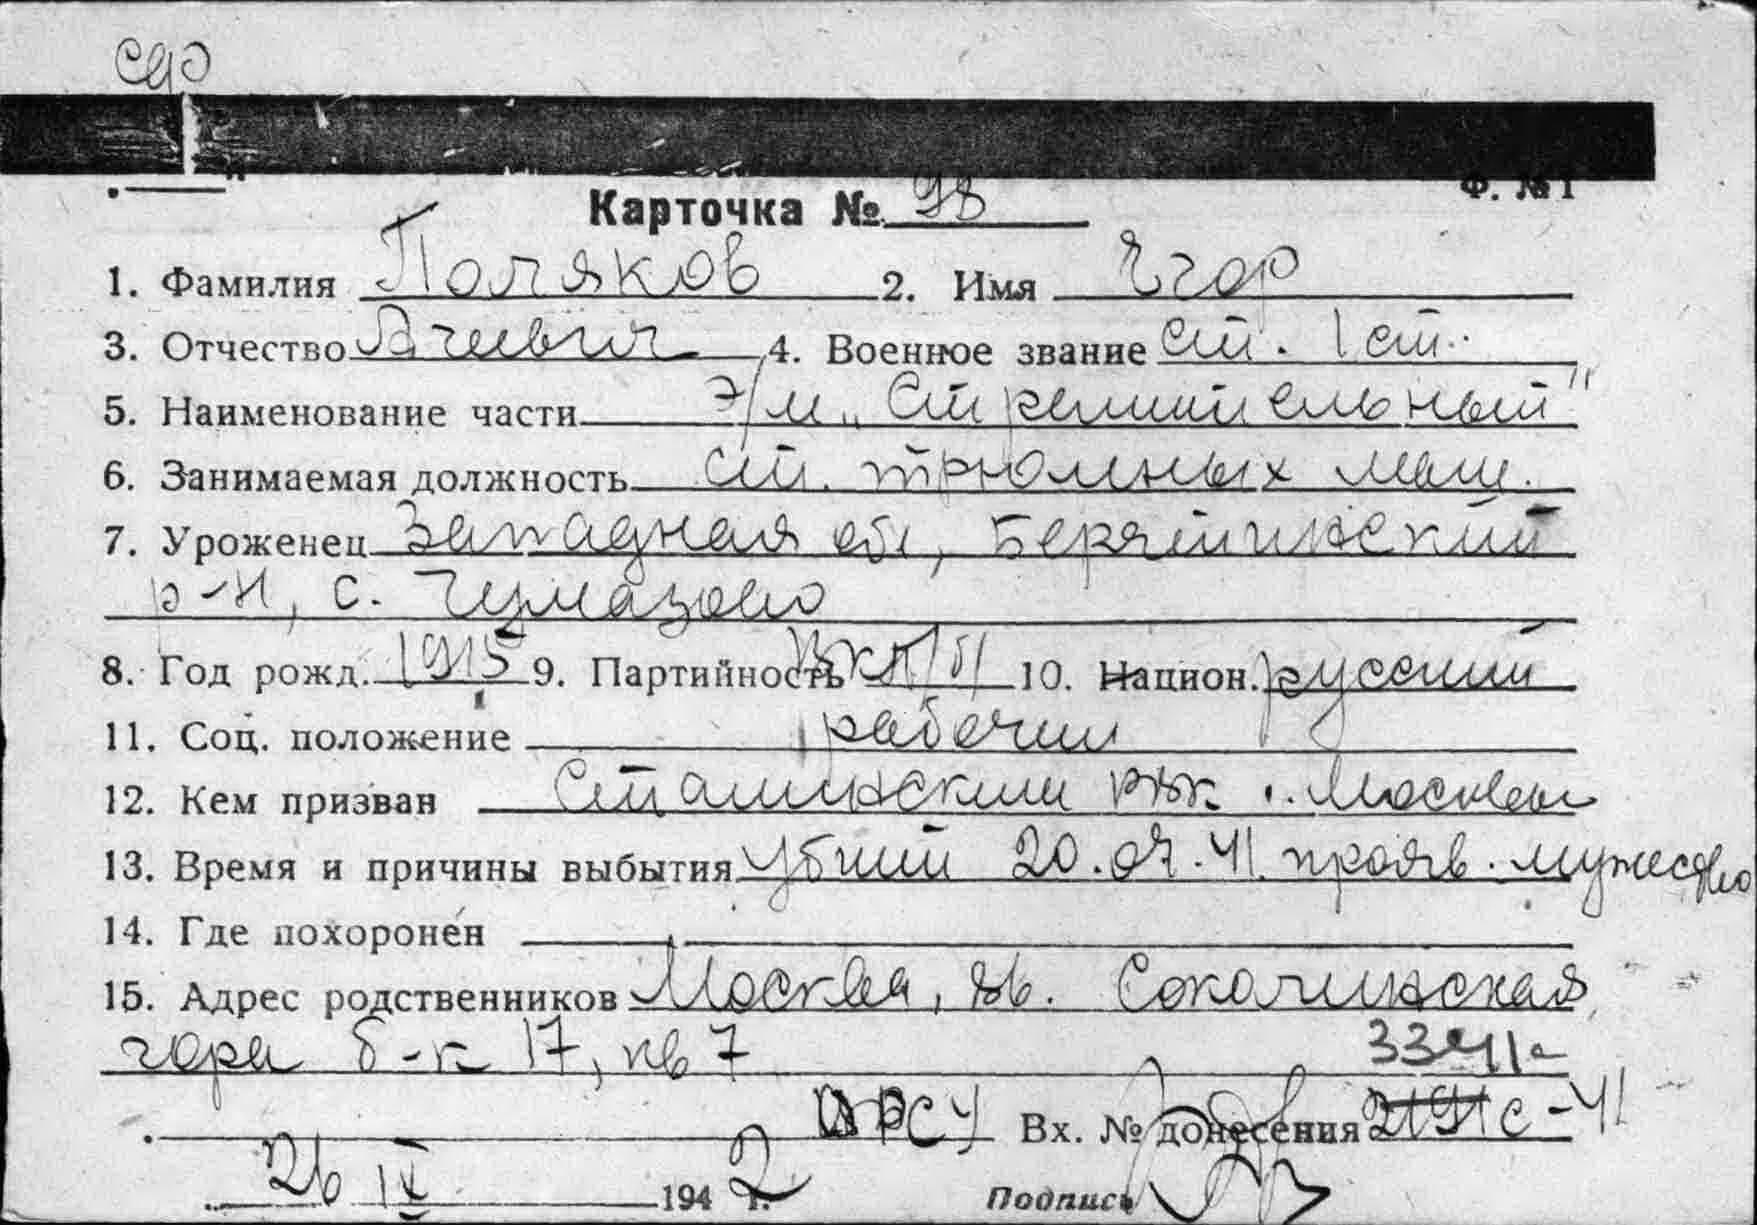 Ф. № 1
Карточка № 98
1. Фамилия Поляков 2. Имя Егор
3. Отчество 4. Военное звание ст. 1 ст.
5. Наименование части Э/М „Стремительный"
6. Занимаемая должность ст. трюмных маш.
7. Уроженец Западная обл, Берятинский
р-н, с. Чумазово
8. Год рожд. 1915 9. Партийность ВКП/б/ 10. Национ. русский
11. Соц. положение рабочий
12. Кем призван Сталинским РВК г. Москвы
13. Время и причины выбытия убит 20.07.41. прояв. мужество
14. Где похоронен
15. Адрес родственников Москва, ул. Соколинская
гора б-к 17, кв 7
Вх. № донесения с-41
26 IV 1942 г. Подпись